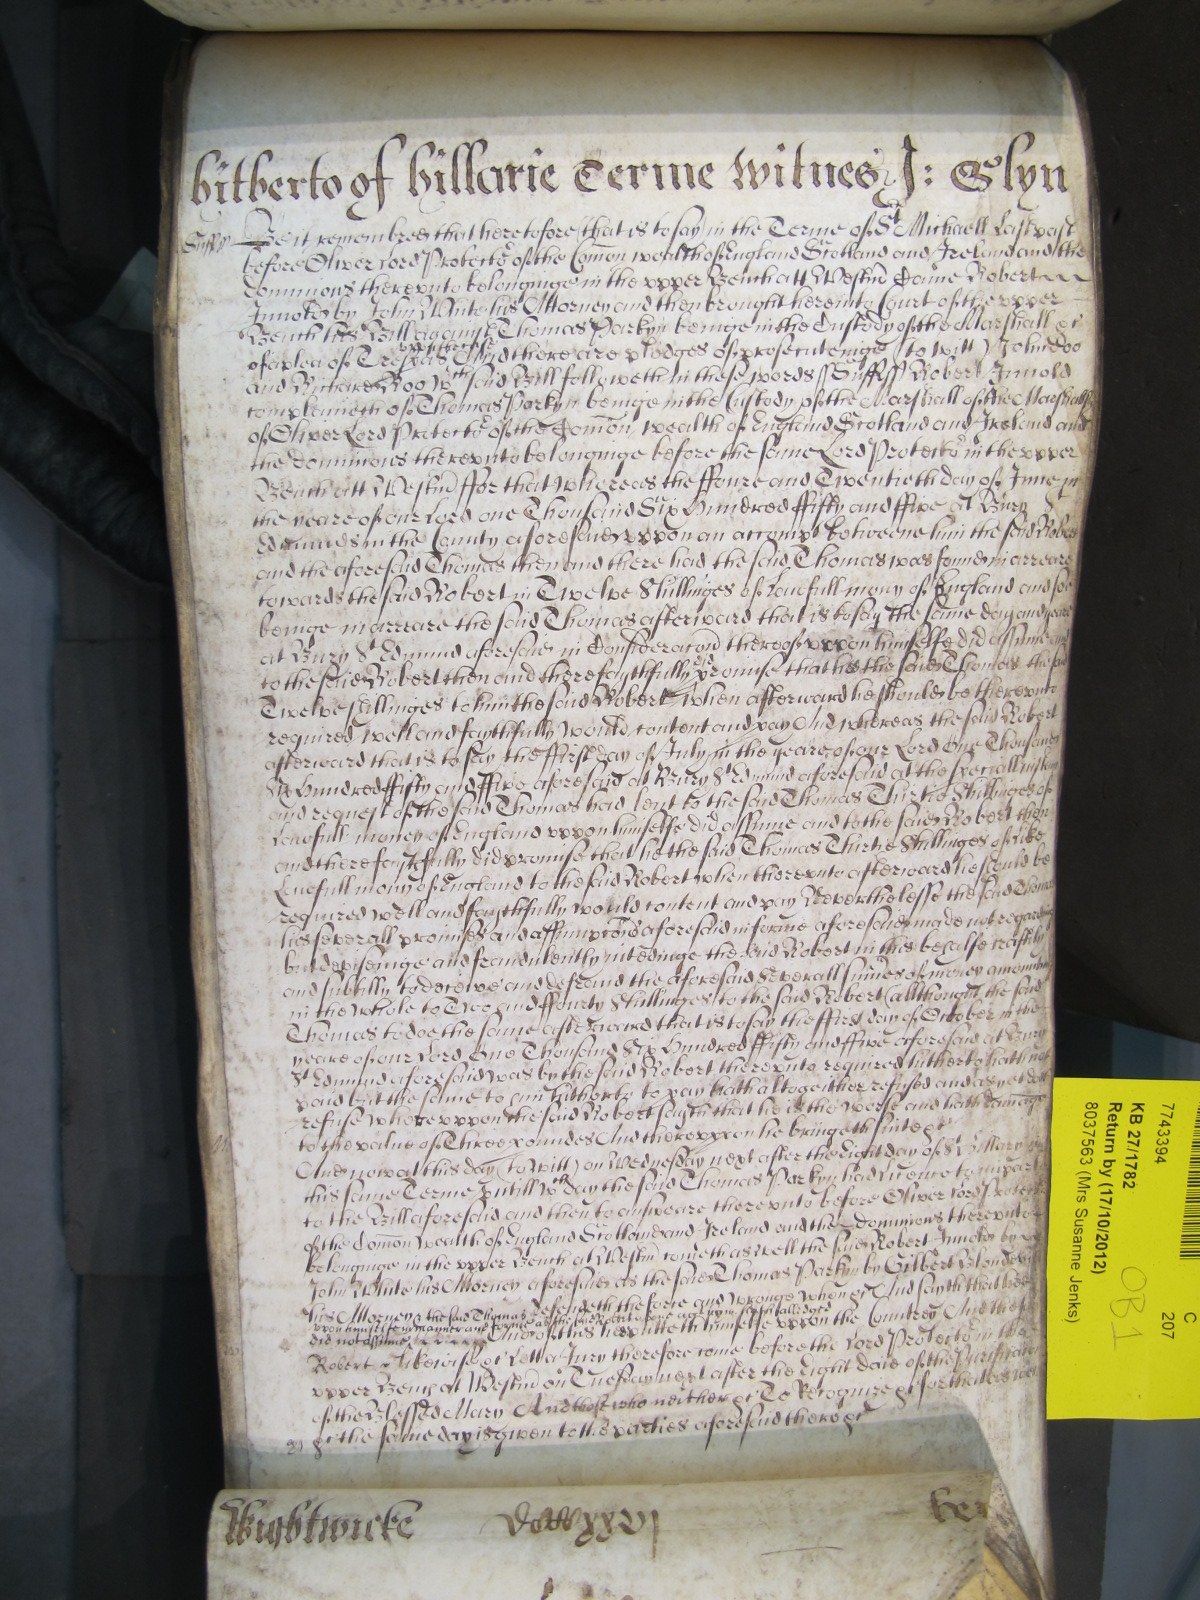 hitherto of hillarie Terme Witnes J: Glyn
Suff ss Be it remembred that heretofore that is to say in the Terme of St Michaell last past
before Oliver Lord Protector of the Comon wealth of England Scotland and Ireland and the
dominions thereunto belonginge in the upper Bench att Westmr Came Robert
by John White his Attorney and then brought here into Court of the upper
Bench his Bill against Thomas Parkyn beinge in the Custody of the Marshall &c
of a plea of Trespas uppon the case And there are pledges of prosecuteinge (to witt) John Doo
and Richard Roo wch said Bill followeth in these words ss Suff ss Robert
complaineth of Thomas Parkyn beinge in the Custody of the Marshall of the Marshallsea
of Oliver Lord Protector of the Comon wealth of England Scotland and Ireland and
the dominions thereunto belonginge before the same Lord Protector in the upper
Bench att Westmr ffor that whereas the ffoure and Twentieth day of June in
the yeare of our Lord one Thousand Six Hundred ffifty and ffive at Bury St
Edmunds in the County aforesaid uppon an accompt betweene him the said Robert
and the aforesaid Thomas then and there had the said Thomas was found in arreare
towards the said Robert in Twelve Shillinges of lawfull mony of England and soe
beinge in arreare the said Thomas afterward that is to say the same day and yeare
at Bury St Edmund aforesaid in Consideracon thereof uppon himselfe did assume and
to the said Robert then and there faythfully did promise that he the said Thomas the said
Twelve shillinges to him the said Robert when afterward he should be thereunto
required well and faythfully would content and pay And whereas the said Robert
afterward that is to say the ffirst day of July in the yeare of our Lord One Thousand
Six Hundred ffifty and ffive aforesaid at Bury St Edmund aforesaid at the speciall instance
and request of the said Thomas had lent to the said Thomas Thirtie Shillinges of
lawfull money of England uppon himselfe did assume and to the said Robert then
and there faythfully did promise that he the said Thomas Thirtie Shillinges of like
lawfull mony of England to the said Robert when thereunto afterward he should be
required well and faythfully would content and pay Neverthelesse the said Thomas
his severall promises and assumpcons aforesaid in forme aforesaid made not regarding
but deviseinge and fraudulently intendinge the said Robert in this behalfe craftily
and subtilly to deceive and defraud the aforesaid severall summes of money amounting
in the whole to Two and ffourty Shillinges to the said Robert (allthough the said
Thomas to doe the same afterward that is to say the ffirst day of October in the
yeare of our Lord One Thousand Six Hundred ffifty and ffive aforesaid at Bury
St Edmund aforesaid was by the said Robert thereunto required hitherto hath not
paid but the same to him hitherto to pay hath altogeither refused and as yet doth
refuse whereuppon the said Robert sayth that he is the worse and hath damage
to the value of Three poundes And thereuppon he bringeth suite &c
And now at this day (to witt) on Wednesday next after the Eight day of St Hillary
this same Terme untill wch day the said Thomas Parkyn had licence to imparle
to the Bill aforesaid and then to answeare thereunto before Oliver Lord Protector
of the Comon wealth of England Scotland and Ireland and the dominions thereunto
belonginge in the upper Bench at Westmr cometh as well the said Robert by
John White his Attorney aforesaid as the said Thomas Parkyn by Gilbert
his Attorney defendeth the force and wronge when &c And sayth that
did not assume uppon himselfe in manner and forme as the said Robert above against him hath alledged
And of this he putteth himselfe uppon the Countrey And the
Robert likewise &c Lett a Jury therefore come before the Lord Protector in the
upper Bench at Westmr on Tuesday next after the Eight daie of the Purification
of the Blessed Mary And those who neither &c To Recognize &c for that as well
&c the same day is given to the parties aforesaid there &c
Wightwicke
7743394
KB 27/1782
Return by (17/10/2012)
8037563 (Mrs Susanne Jenks)
C
207
OB1